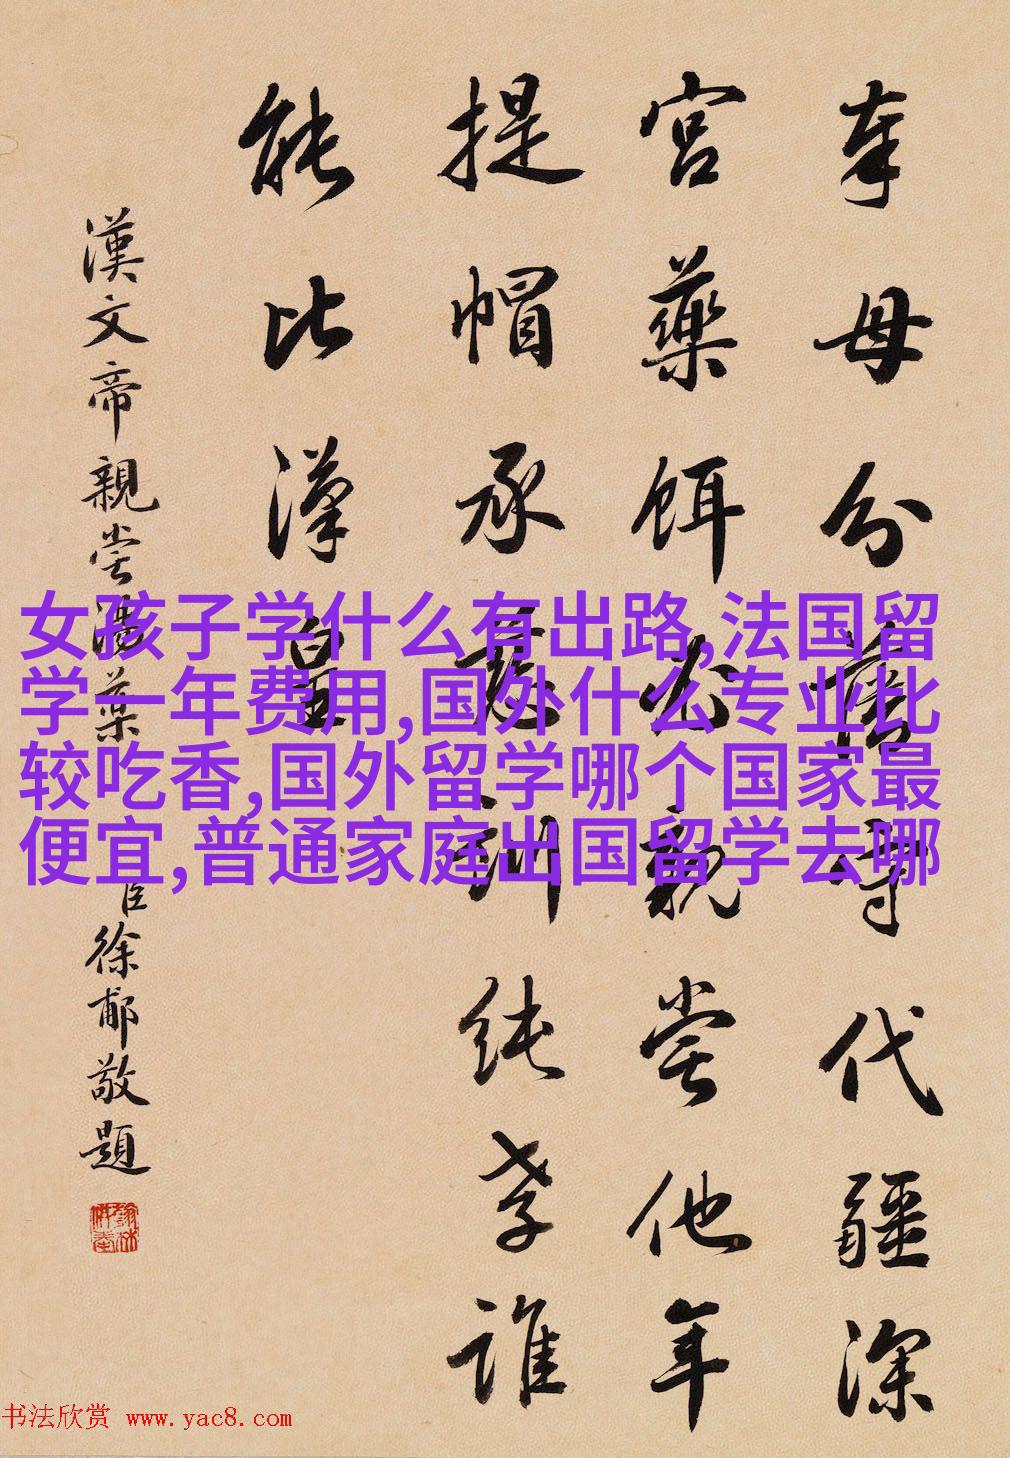 奉母分藩守代疆深
宮藥餌必親嘗他年
提帽承慈訓純孝誰
能比漢皇
漢文帝親嘗湯藥 臣徐郙敬題
女孩子学什么有出路,法国留
学一年费用,国外什么专业比
较吃香,国外留学哪个国家最
便宜,普通家庭出国留学去哪
书法欣赏 www.yac8.com